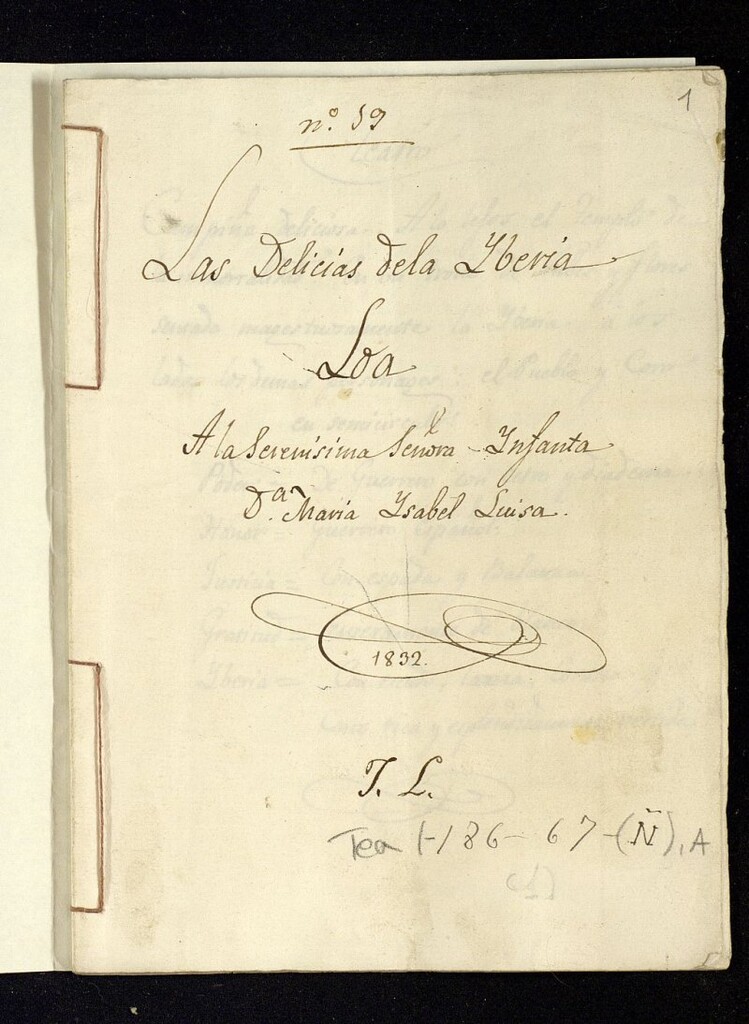 1
nº. 59
Las Delicias dela Yberia
Loa
A la Serenísima Señora Ynfanta
Dª. María Ysabel Luisa.
1832.
T. L.
Tea 1-186-67-(Ñ), A